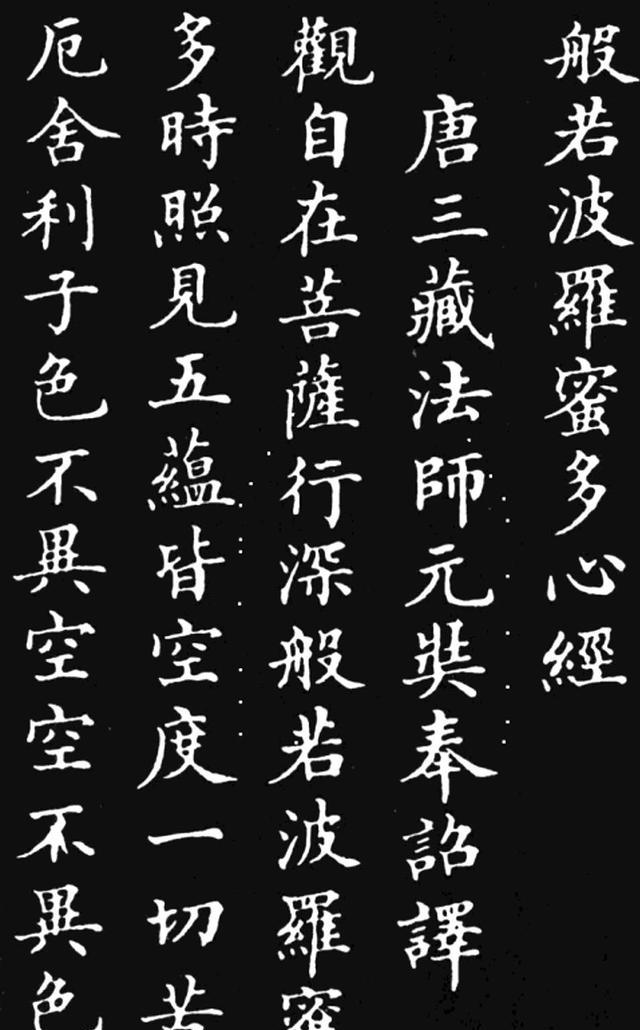 般若波羅蜜多心經
唐三藏法師元奘奉詔譯
觀自在菩薩行深般若波羅蜜
多時照見五蘊皆空度一切苦
厄舍利子色不異空空不異色